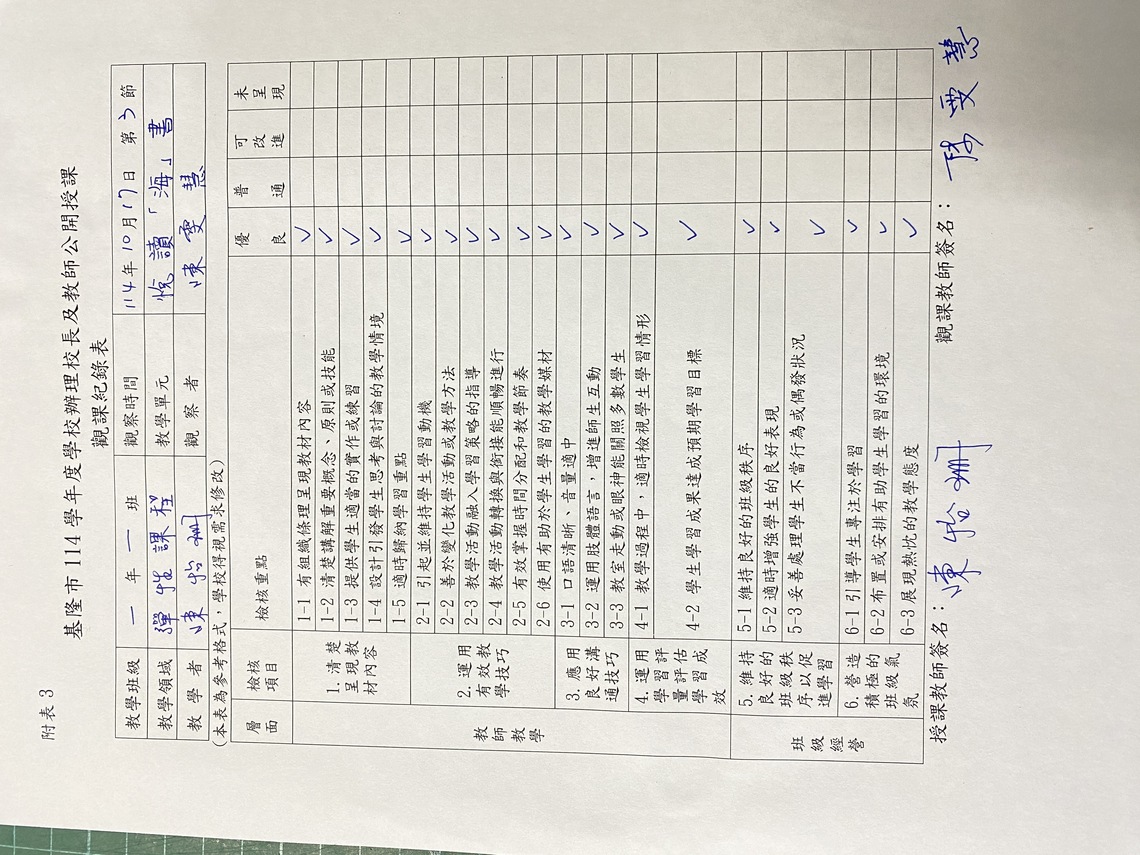 附表 3
基隆市 114 學年度學校辦理校長及教師公開授課
觀課紀錄表
教學班級 一 年 一 班 觀察時間 114年 10月 17日 第 3 節
教學領域 彈性課程 教學單元 悅讀「海」書
教學者 陳怡 觀察者 陳雯慧
(本表為參考格式,學校得視需求修改)
層面 檢核項目 檢核重點 優良 普通 可改進 未呈現
教師教學
1. 清楚呈現教材內容
1-1 有組織條理呈現教材內容 ✓
1-2 清楚講解重要概念、原則或技能 ✓
1-3 提供學生適當的實作或練習 ✓
1-4 設計引發學生思考與討論的教學情境 ✓
1-5 適時歸納學習重點 ✓
2. 運用有效教學技巧
2-1 引起並維持學生學習動機 ✓
2-2 善於變化教學活動或教學方法 ✓
2-3 教學活動融入學習策略的指導 ✓
2-4 教學活動轉換與銜接能順暢進行 ✓
2-5 有效掌握時間分配和教學節奏 ✓
2-6 使用有助於學生學習的教學媒材 ✓
3. 應用良好溝通技巧
3-1 口語清晰、音量適中 ✓
3-2 運用肢體語言,增進師生互動 ✓
3-3 教室走動或眼神能關照多數學生 ✓
4. 運用學習評量評估學習成效
4-1 教學過程中,適時檢視學生學習情形 ✓
4-2 學生學習成果達成預期學習目標 ✓
班級經營
5. 維持良好的班級秩序以促進學習
5-1 維持良好的班級秩序 ✓
5-2 適時增強學生的良好表現 ✓
5-3 妥善處理學生不當行為或偶發狀況 ✓
6. 營造積極的班級氣氛
6-1 引導學生專注於學習 ✓
6-2 布置或安排有助學生學習的環境 ✓
6-3 展現熱忱的教學態度 ✓
授課教師簽名: 陳怡 觀課教師簽名: 陳雯慧